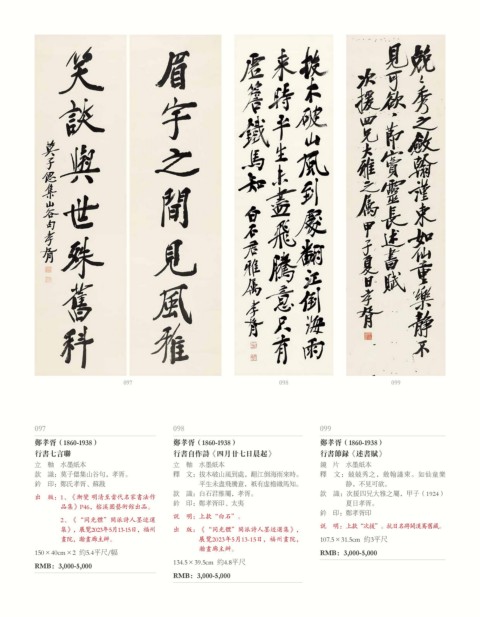 眉宇之間見風雅
笑談與世殊舊科
莫子偲集山谷句孝胥
拔木破山風到處翻江倒海雨
來時平生未盡飛騰意只有
虛簷鐵馬知 白石君雅屬 孝胥
兢兢秀之斂翰謹束如仙童樂靜不
見可欲 節竇靈長述書賦
次援四兄大雅之屬甲子夏日孝胥
097
098
099
097
鄭孝胥（1860-1938）
行書七言聯
立　軸　水墨紙本
款　識：莫子偲集山谷句，孝胥。
鈐　印：鄭氏孝胥、蘇戡
出　版：1、《漸覺·明清至當代名家書法作
品集》P46，榕派園藝術館出品。
2、《“同光體”閩派詩人墨迹選
集》，展覽2023年5月13-15日，福州
畫院，瀚畫廊主辦。
150×40cm×2 約5.4平尺/幅
RMB：3,000-5,000
098
鄭孝胥（1860-1938）
行書自作詩《四月廿七日晨起》
立　軸　水墨紙本
釋　文：拔木破山風到處，翻江倒海雨來時。
平生未盡飛騰意，祇有虛檐鐵馬知。
款　識：白石君雅屬，孝胥。
鈐　印：鄭孝胥印、太夷
說　明：上款“白石”。
出　版：《“同光體”閩派詩人墨迹選集》，
展覽2023年5月13-15日，福州畫院，
瀚畫廊主辦。
134.5×39.5cm 約4.8平尺
RMB：3,000-5,000
099
鄭孝胥（1860-1938）
行書節録《述書賦》
鏡　片　水墨紙本
釋　文：兢兢秀之，斂翰謹束。如仙童樂
靜，不見可欲。
款　識：次援四兄大雅之屬，甲子（1924）
夏日孝胥。
鈐　印：鄭孝胥印
說　明：上款“次援”，
107.5×31.5cm 約3平尺
RMB：3,000-5,000